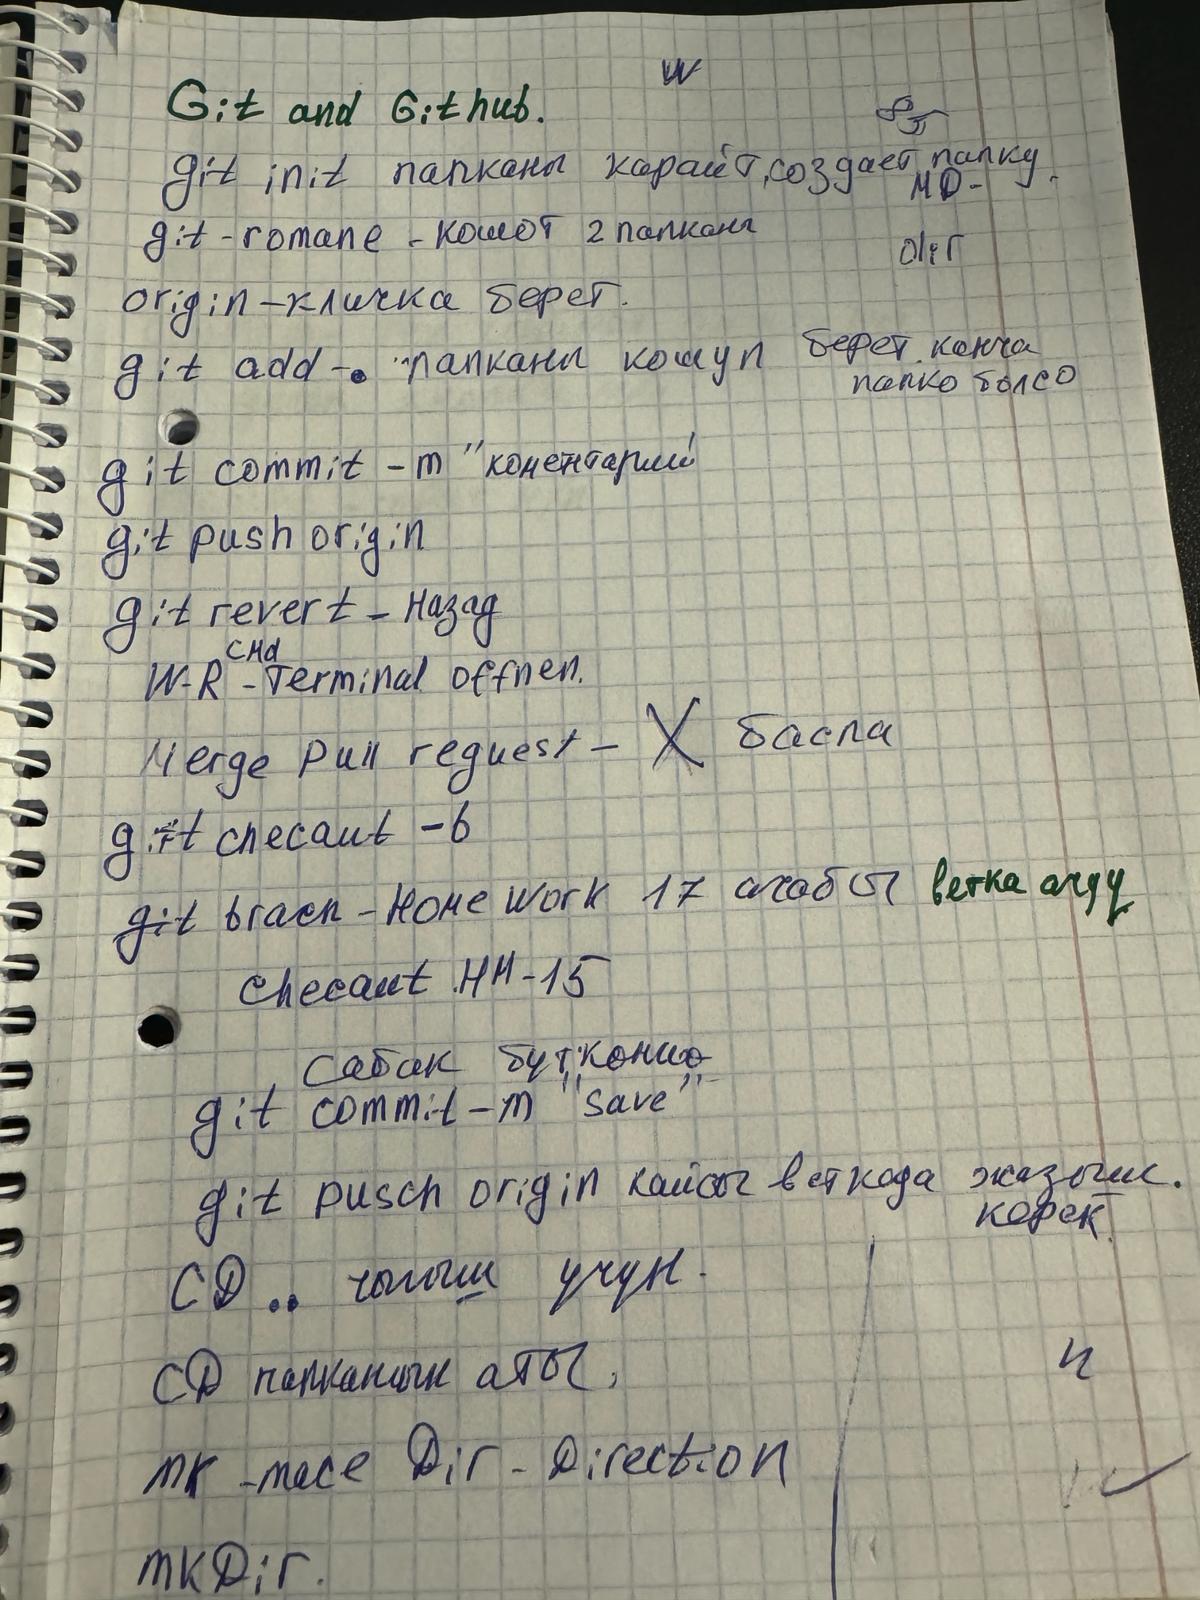 W
Git and Github.
git init папканы карайт, создает папку.
MD-
git-romane - кошот 2 папканы
dir
origin - кличка берет.
git add -. папканы кошуп берет канча
папка болсо
git commit -m "коментарий"
git push origin
git revert - назад
CMd
W-R - Terminal offnen.
Merge Pull reguest - X баспа
git checaut -b
git brach - Home Work 17 ачабы ветка ачуу
checaut HH-15
Сабак бутконцо
git commit -m "save"
git pusch origin кайсы веткада жазыш.
керек.
CD .. чыгыш учун.
CD папканын аты,
и
MK - mace Dir - Direction
MKDir.